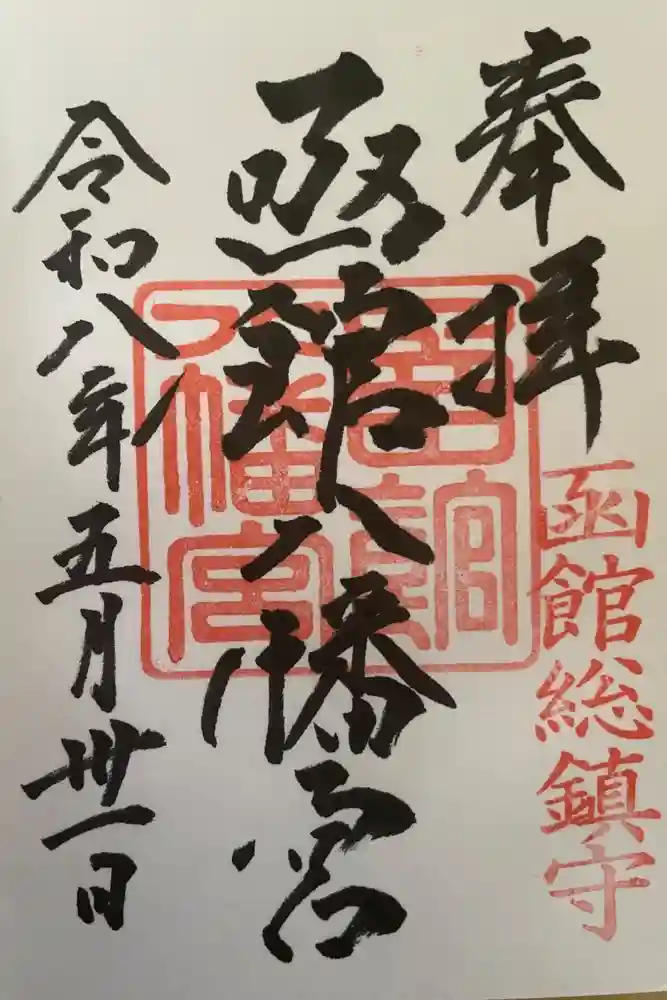 奉拝
函館総鎮守
函館八幡宮
函館八幡宮
令和八年五月卅一日